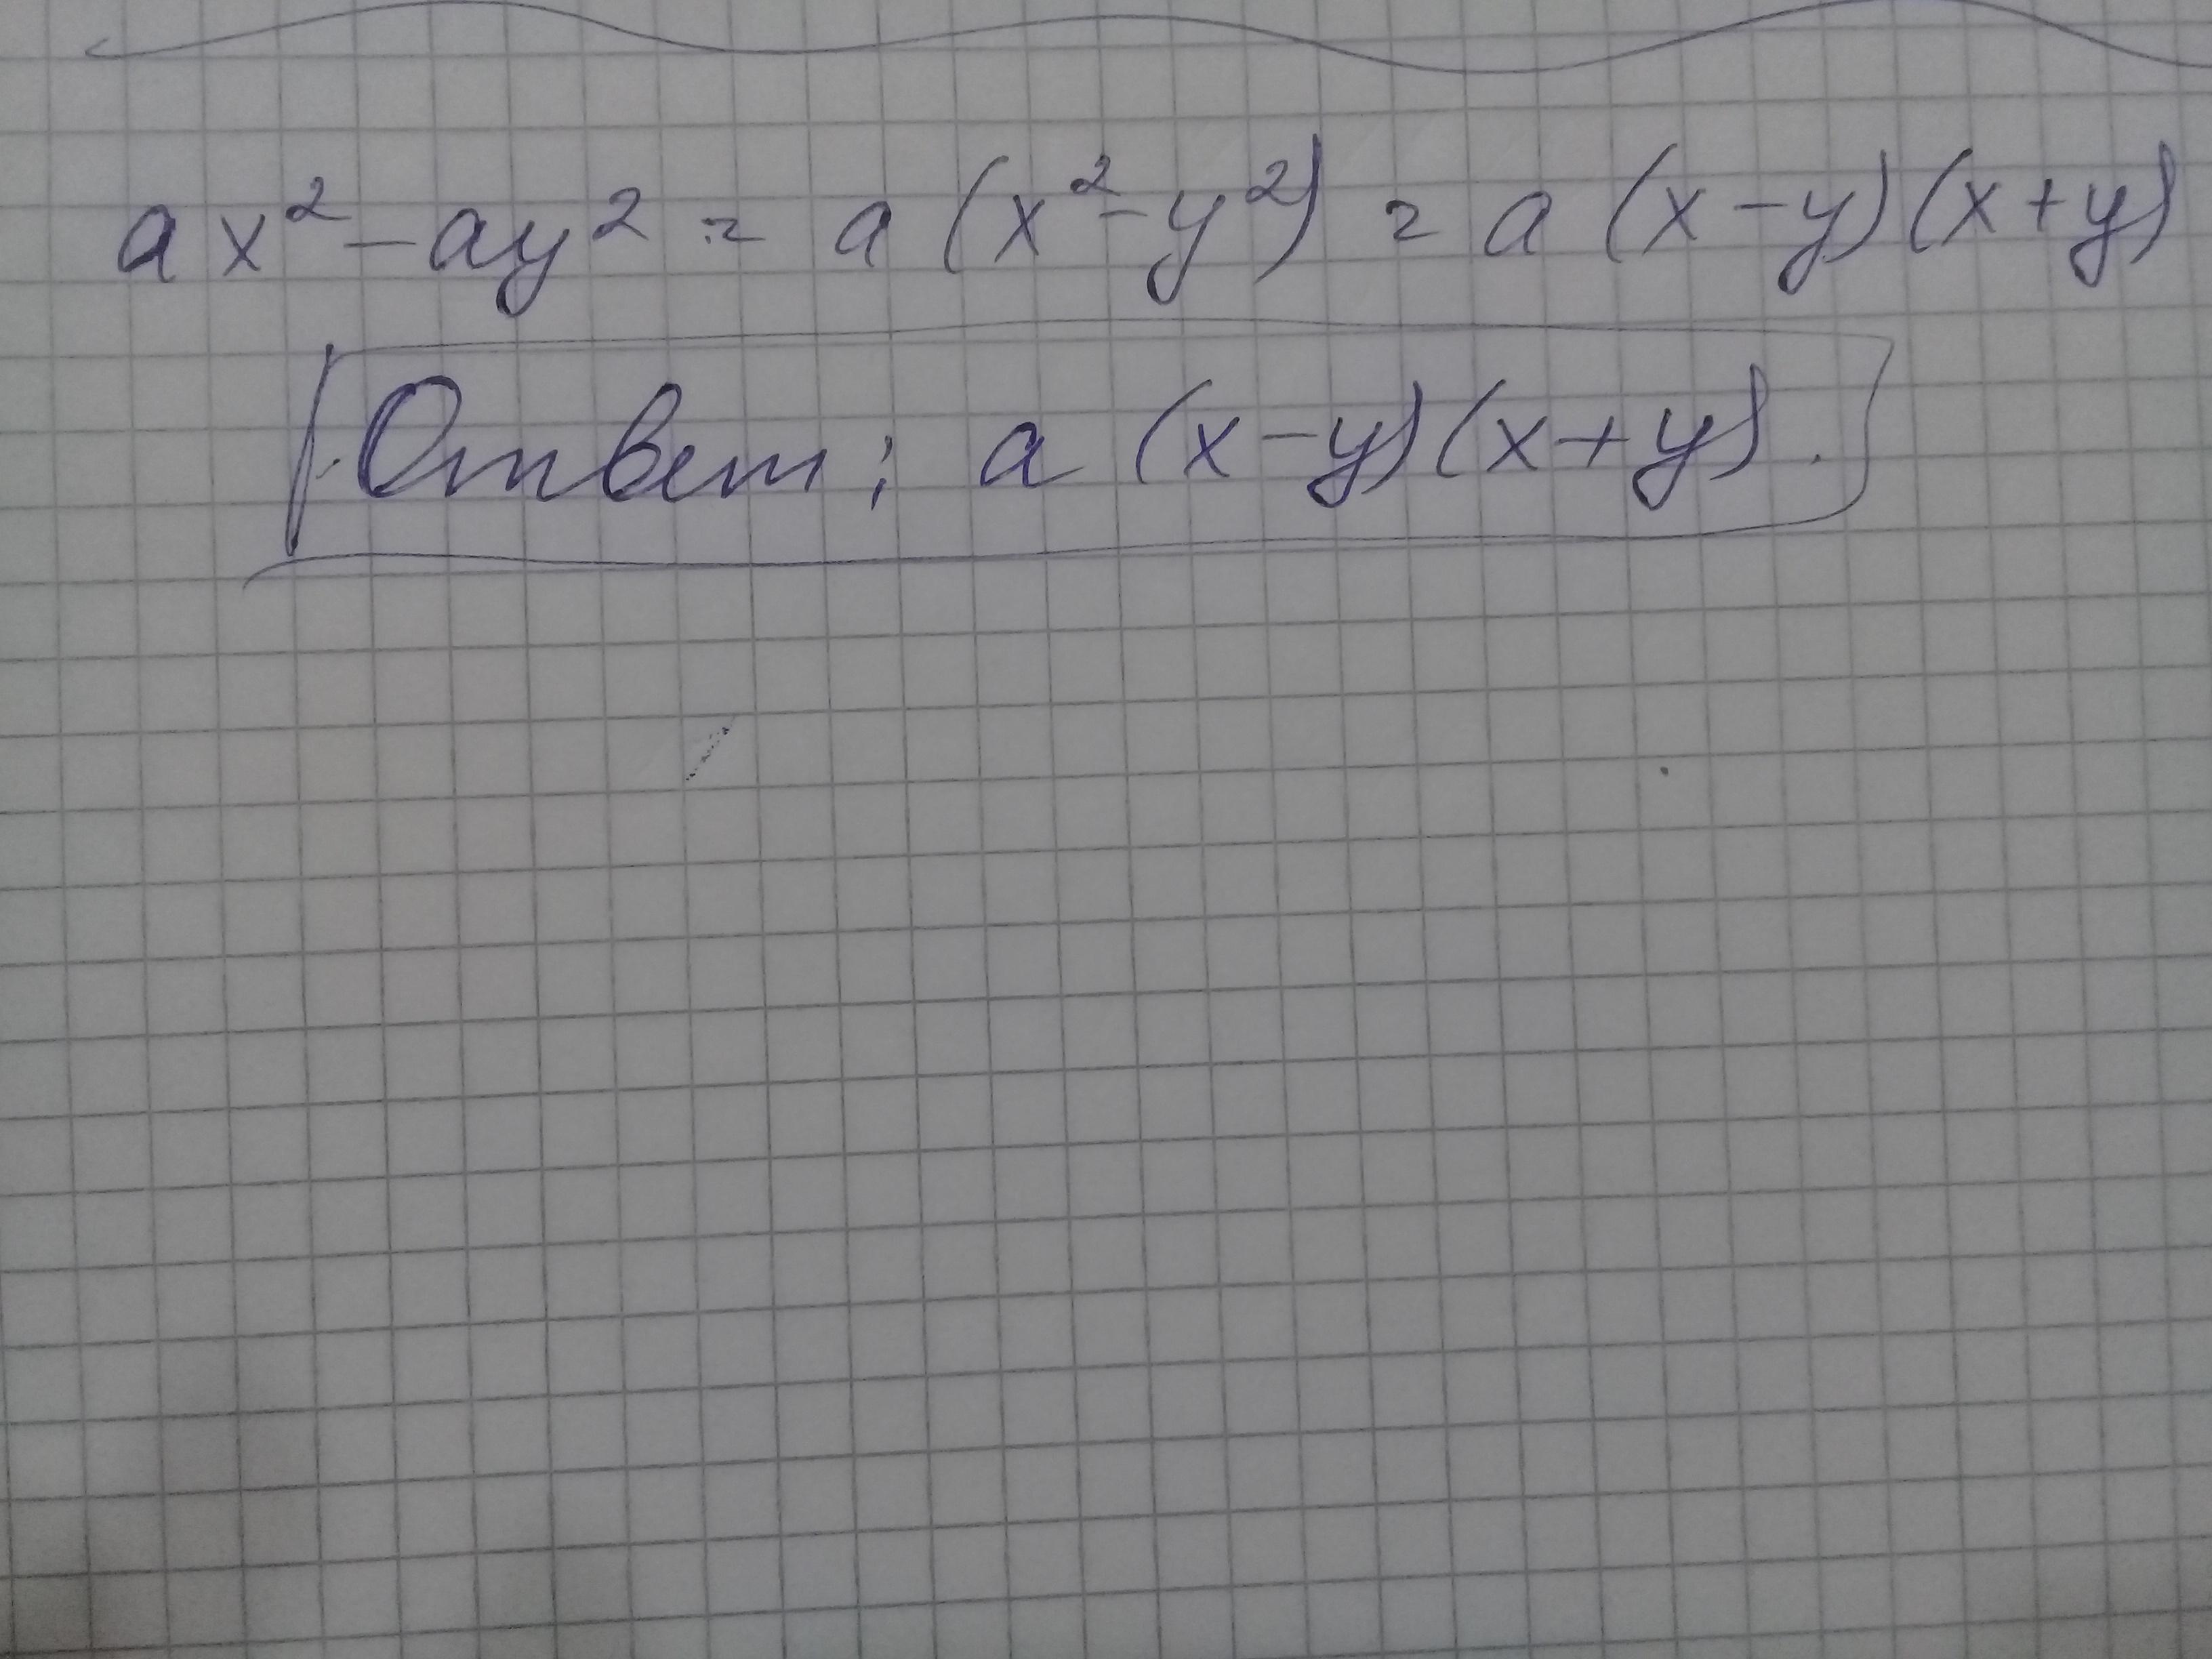 ax² - ay² = a (x² - y²) = a (x - y)(x + y)
Ответ: a (x - y)(x + y).